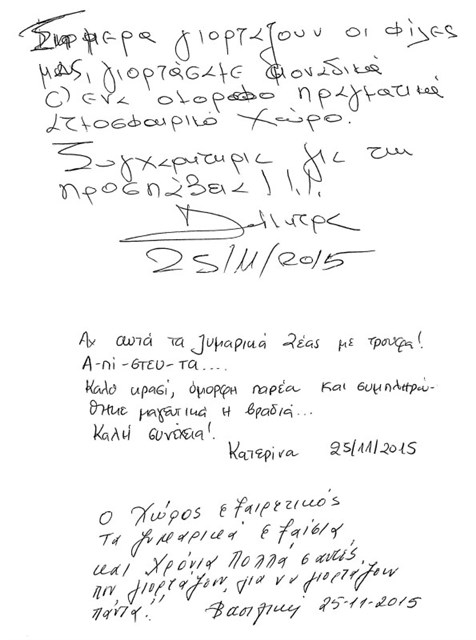 Σήμερα γιορτάζουν οι φίλες
μας, γιορτάσαμε μοναδικά
σ' ένα όμορφο πραγματικά
ατμοσφαιρικό χώρο.
Συγχαρητήρια για την
προσπάθεια!!!
Δήμητρα
25/11/2015
Αχ αυτά τα ζυμαρικά σας με τρούφα!
Α-πί-στευ-τα....
Καλό κρασί, όμορφη παρέα και συμπληρώ-
θηκε μαγευτικά η βραδιά...
Καλή συνέχεια!
Κατερίνα 25/11/2015
Ο Χώρος εξαιρετικός
Τα ζυμαρικά εξαίσια
και Χρόνια Πολλά σ' αυτές
που γιορτάζουν, για να γιορτάζουν
πάντα!!
Βασιλική 25-11-2015